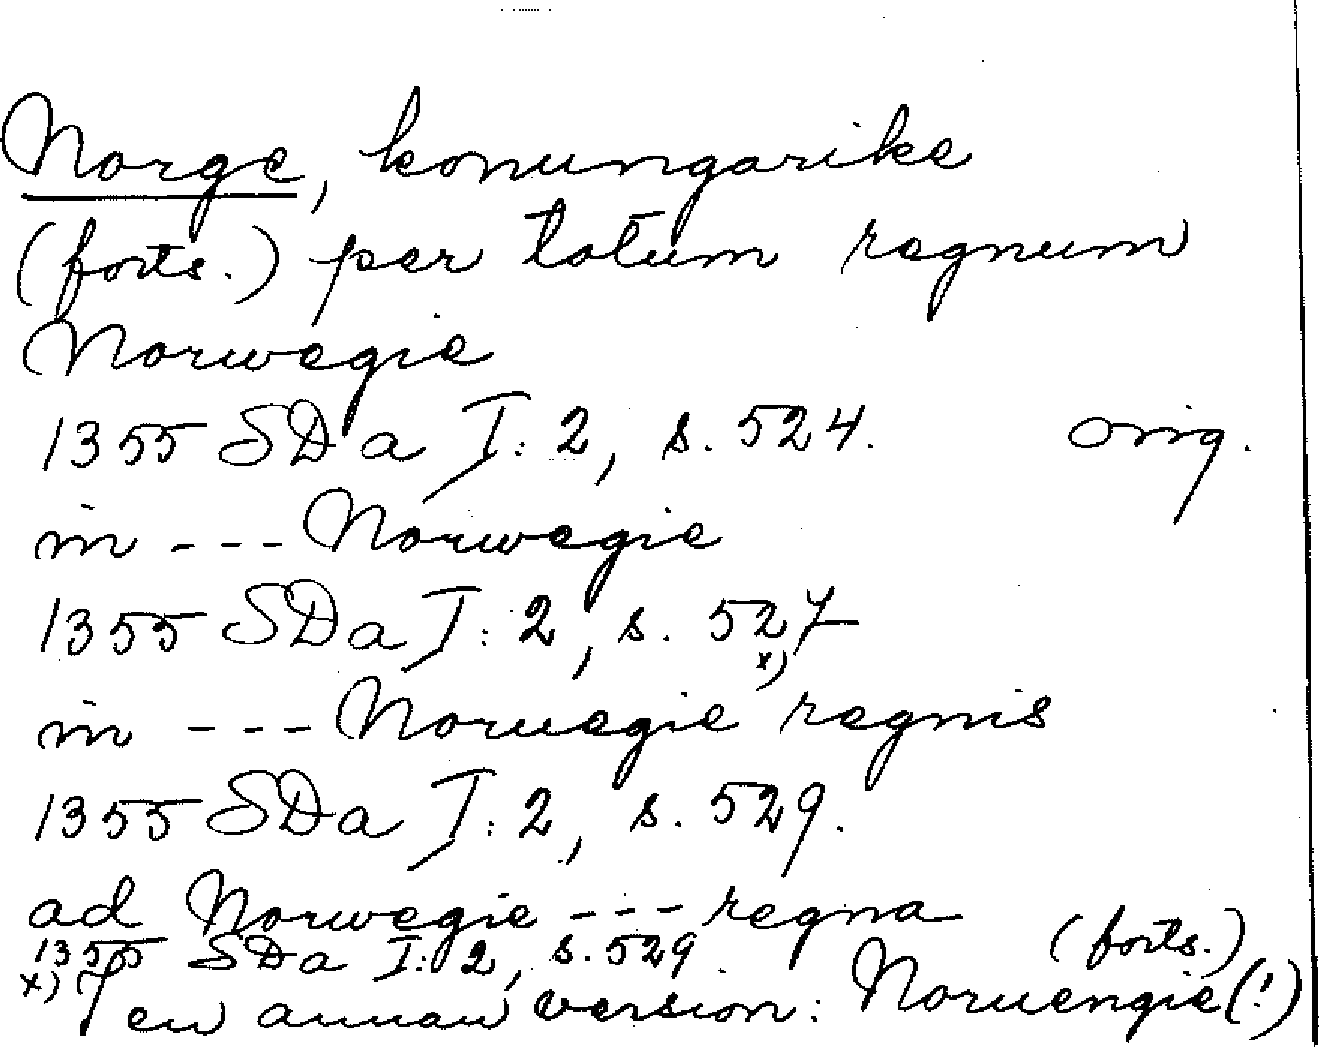 Norge, konungarike
(forts.) per totum regnum
Norwegie
1355 SDa I:2, s. 524. orig.
in --- Norwegie
1355 SDa I:2, s. 527 x)
in --- Noruegie regnis
1355 SDa I:2, s. 529.
ad Norwegie --- regna (forts.)
1355 SDa I:2, s. 529.
x) I en annan version: Noruengie(!)